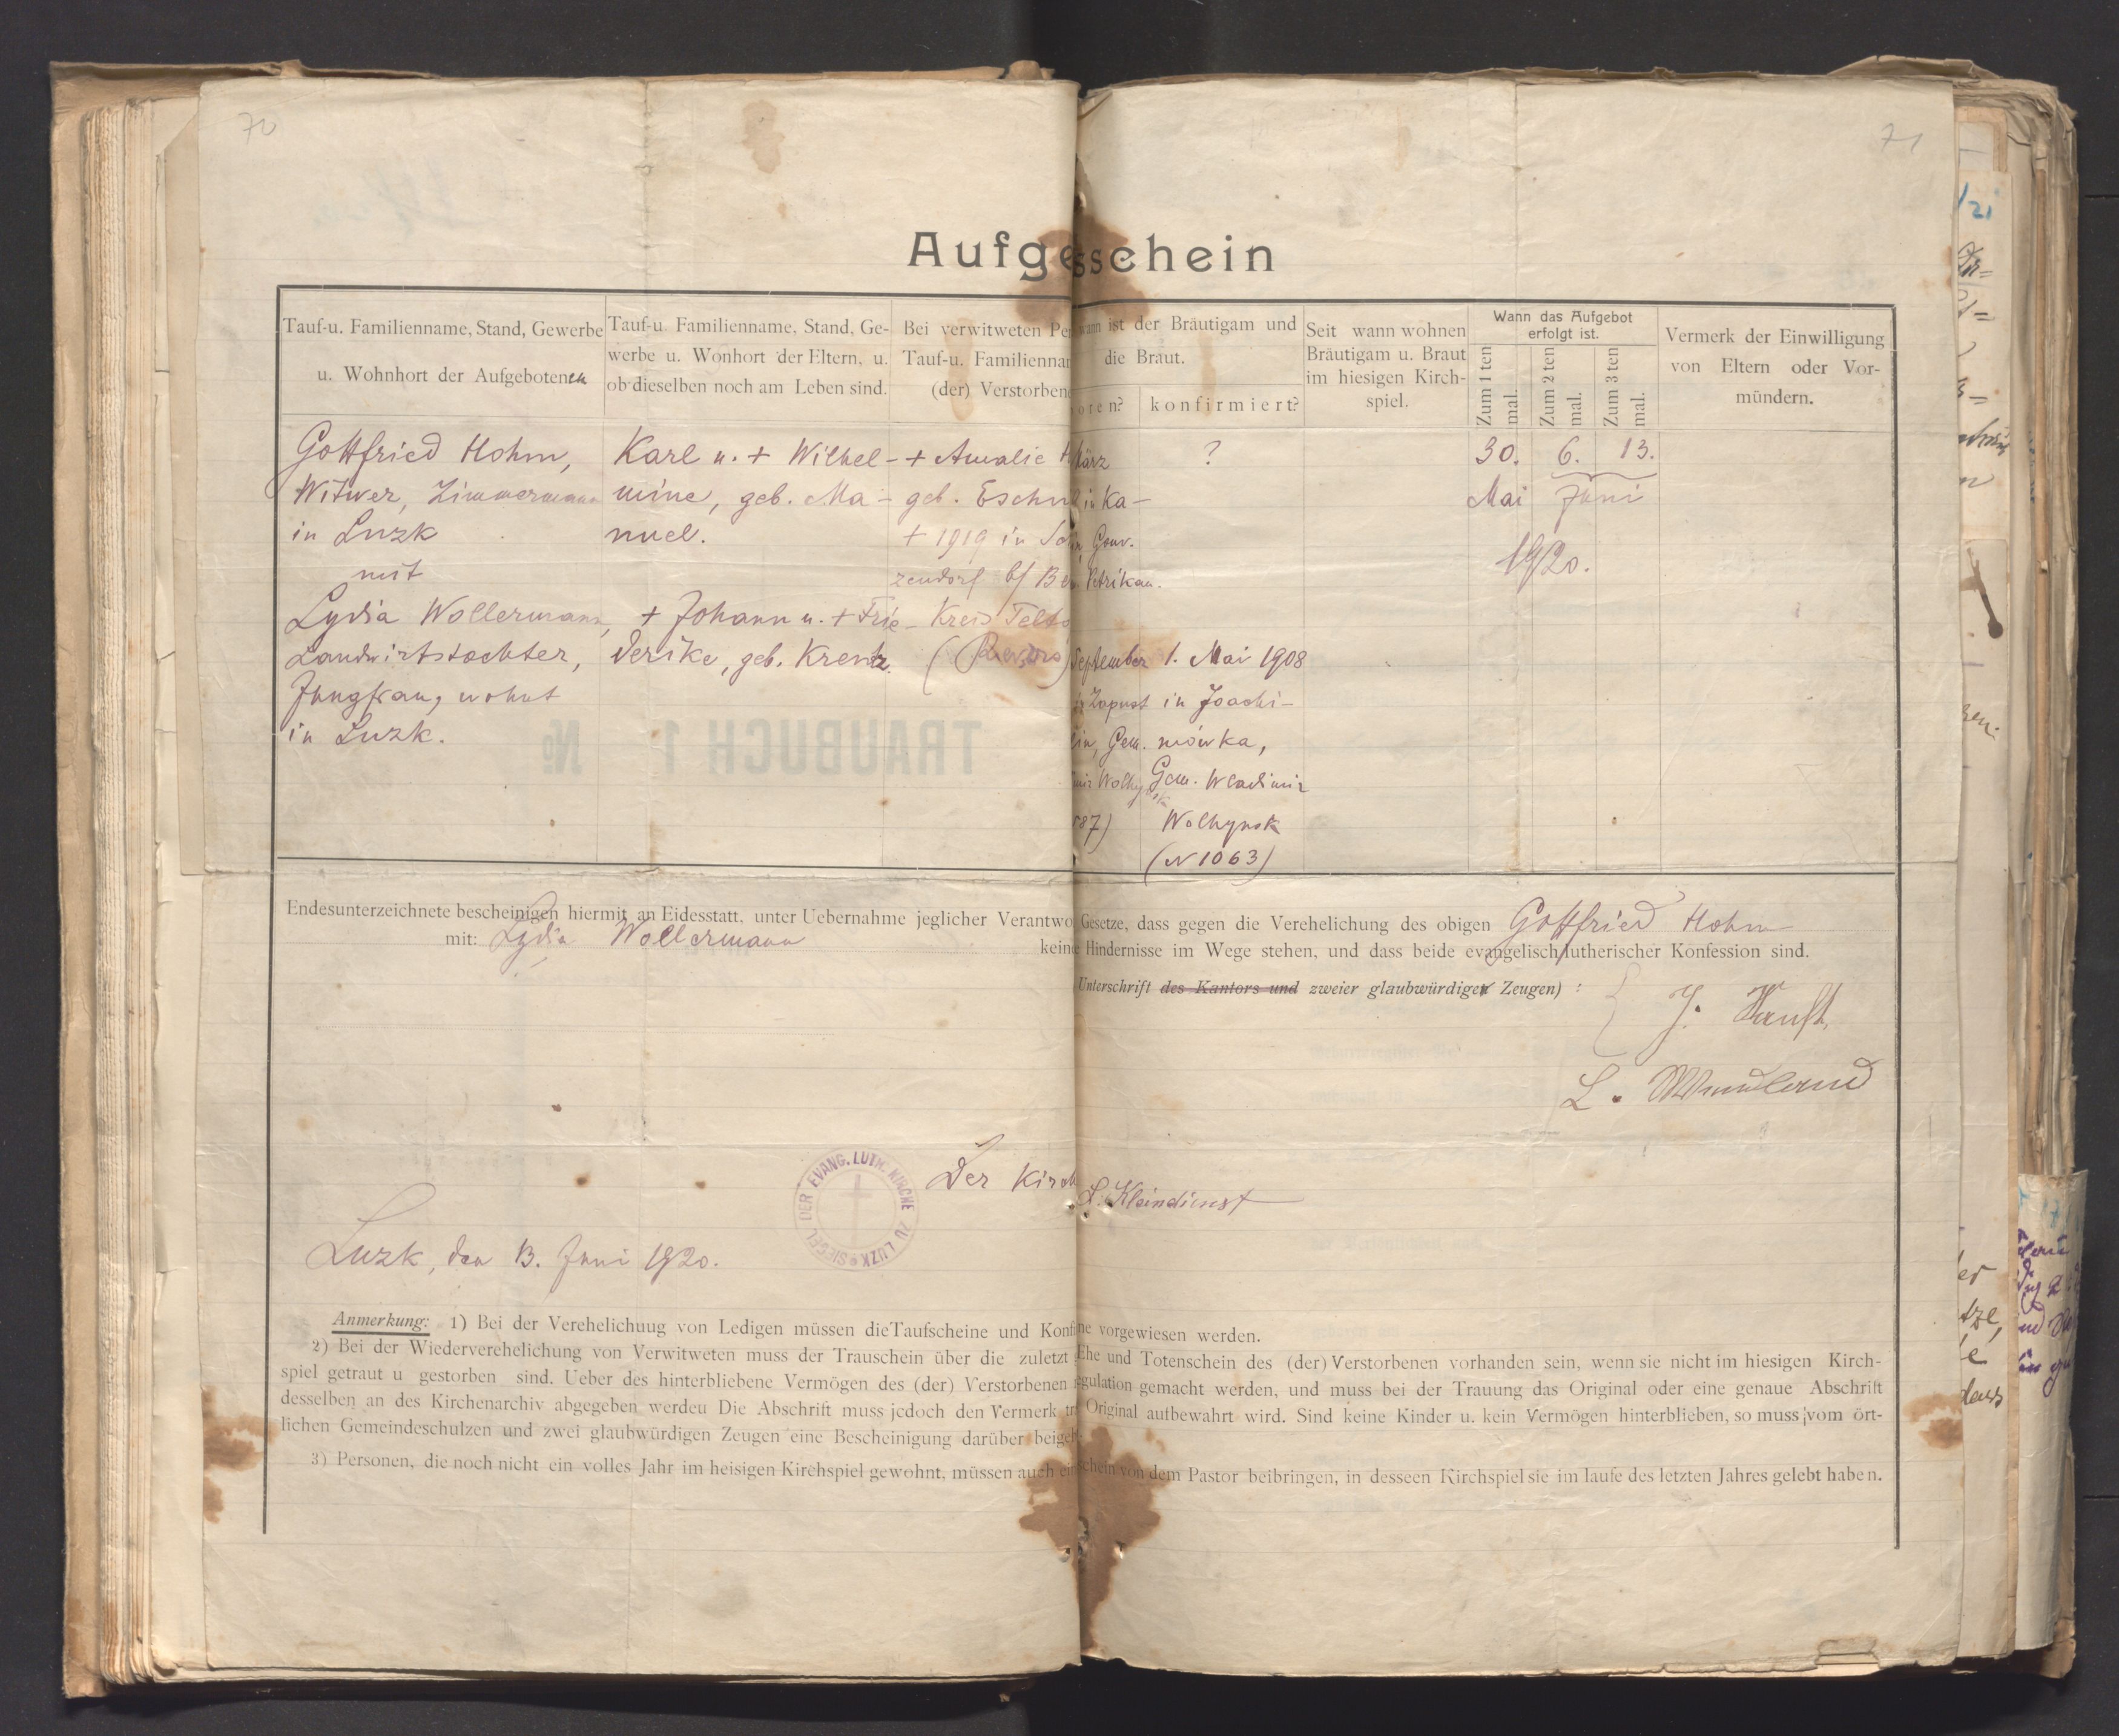 70
71
Aufge
sschein
Tauf-u. Familienname, Stand, Gewerbe
u. Wohnhort der Aufgebotenen
Tauf-u. Familienname, Stand, Ge-
werbe u. Wonhort der Eltern, u.
ob dieselben noch am Leben sind.
Bei verwitweten Pe
Tauf-u. Familienna
(der) Verstorben
wann ist der Bräutigam und
die Braut.
oren?
konfirmiert?
Seit wann wohnen
Bräutigam u. Braut
im hiesigen Kirch-
spiel.
Wann das Aufgebot
erfolgt ist.
Zum 1 ten
mal.
Zum 2 ten
mal.
Zum 3 ten
mal.
Vermerk der Einwilligung
von Eltern oder Vor-
mündern.
Gottfried Hohm,
Witwer, Zimmermann
in Luzk
mit
Lydia Wollermann,
Landwirtstochter,
Jungfrau, wohnt
in Luzk.
Karl u. + Wilhel-
mine, geb. Ma-
nuel.
+ Johann u. + Frie-
derike, geb. Krentz.
+ Amalie H
geb. Eschn
+ 1919 in
zendorf b/ Be
Kreis Telto
März
in Ka-
Gouv.
Petrikau.
September
Zapust
lin, Gem.
mir Wolhynsk
87)
?
1. Mai 1908
in Joachi-
mówka,
Gem. Wladimir
Wolhynsk
(N 1063)
30. 6. 13.
Mai Juni
1920.
TRAUBUCH 1 №
Endesunterzeichnete bescheinigen hiermit an Eidesstatt, unter Uebernahme jeglicher Verantwo
Gesetze, dass gegen die Verehelichung des obigen Gottfried Hohm
mit: Lydia Wollermann
keine Hindernisse im Wege stehen, und dass beide evangelisch/lutherischer Konfession sind.
Unterschrift des Kantors und zweier glaubwürdiger Zeugen) :
J. Hanft,
L.
Der Kirch
L. Kleindienst
SIEGEL DER EVANG. LUTH. KIRCHE ZU LUZK
Luzk, den 13. Juni 1920.
Anmerkung: 1) Bei der Verehelichuug von Ledigen müssen die Taufscheine und Konfi
ne vorgewiesen werden.
2) Bei der Wiederverehelichung von Verwitweten muss der Trauschein über die zuletzt
Ehe und Totenschein des (der) Verstorbenen vorhanden sein, wenn sie nicht im hiesigen Kirch-
spiel getraut u gestorben sind. Ueber des hinterbliebene Vermögen des (der) Verstorbenen
egulation gemacht werden, und muss bei der Trauung das Original oder eine genaue Abschrift
desselben an des Kirchenarchiv abgegeben werdeu Die Abschrift muss jedoch den Vermerk tr
Original aufbewahrt wird. Sind keine Kinder u. kein Vermögen hinterblieben, so muss vom ört-
lichen Gemeindeschulzen und zwei glaubwürdigen Zeugen eine Bescheinigung darüber beige
3) Personen, die noch nicht ein volles Jahr im heisigen Kirchspiel gewohnt, müssen auch ein
schein von dem Pastor beibringen, in desseen Kirchspiel sie im laufe des letzten Jahres gelebt haben.